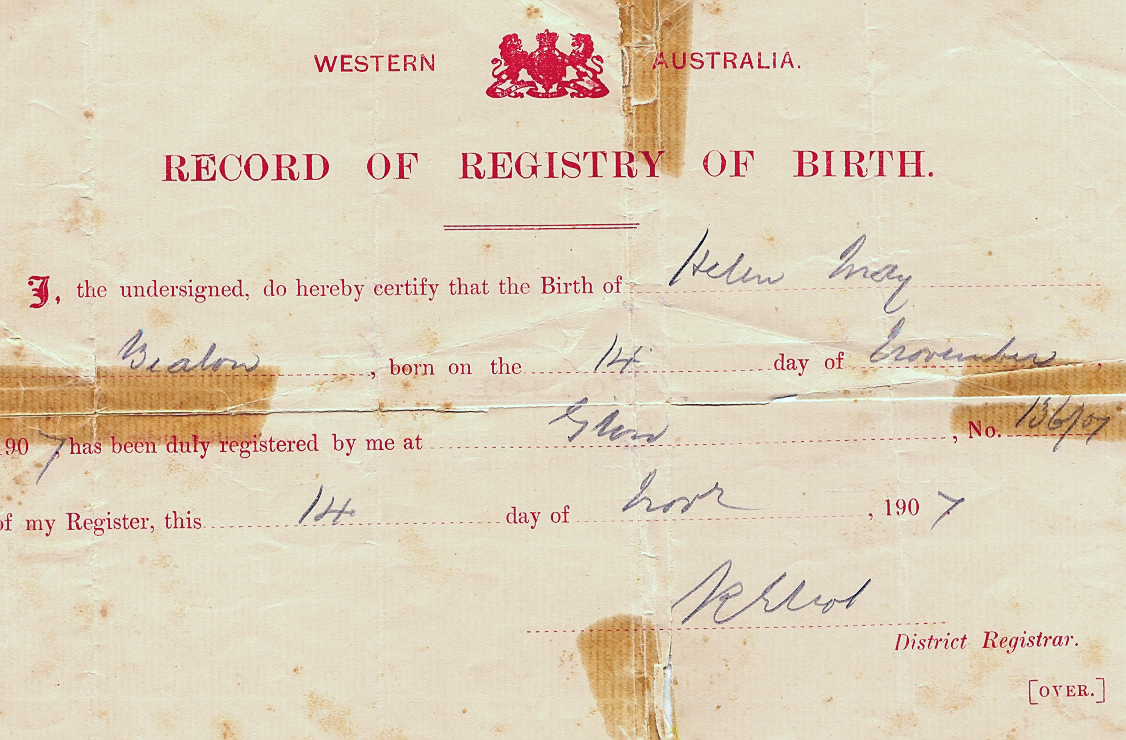 WESTERN AUSTRALIA.
RECORD OF REGISTRY OF BIRTH.
I, the undersigned, do hereby certify that the Birth of Helen May
, born on the 14 day of November,
907, has been duly registered by me at , No. 136/07
of my Register, this 14 day of Novr, 1907
District Registrar.
[OVER.]